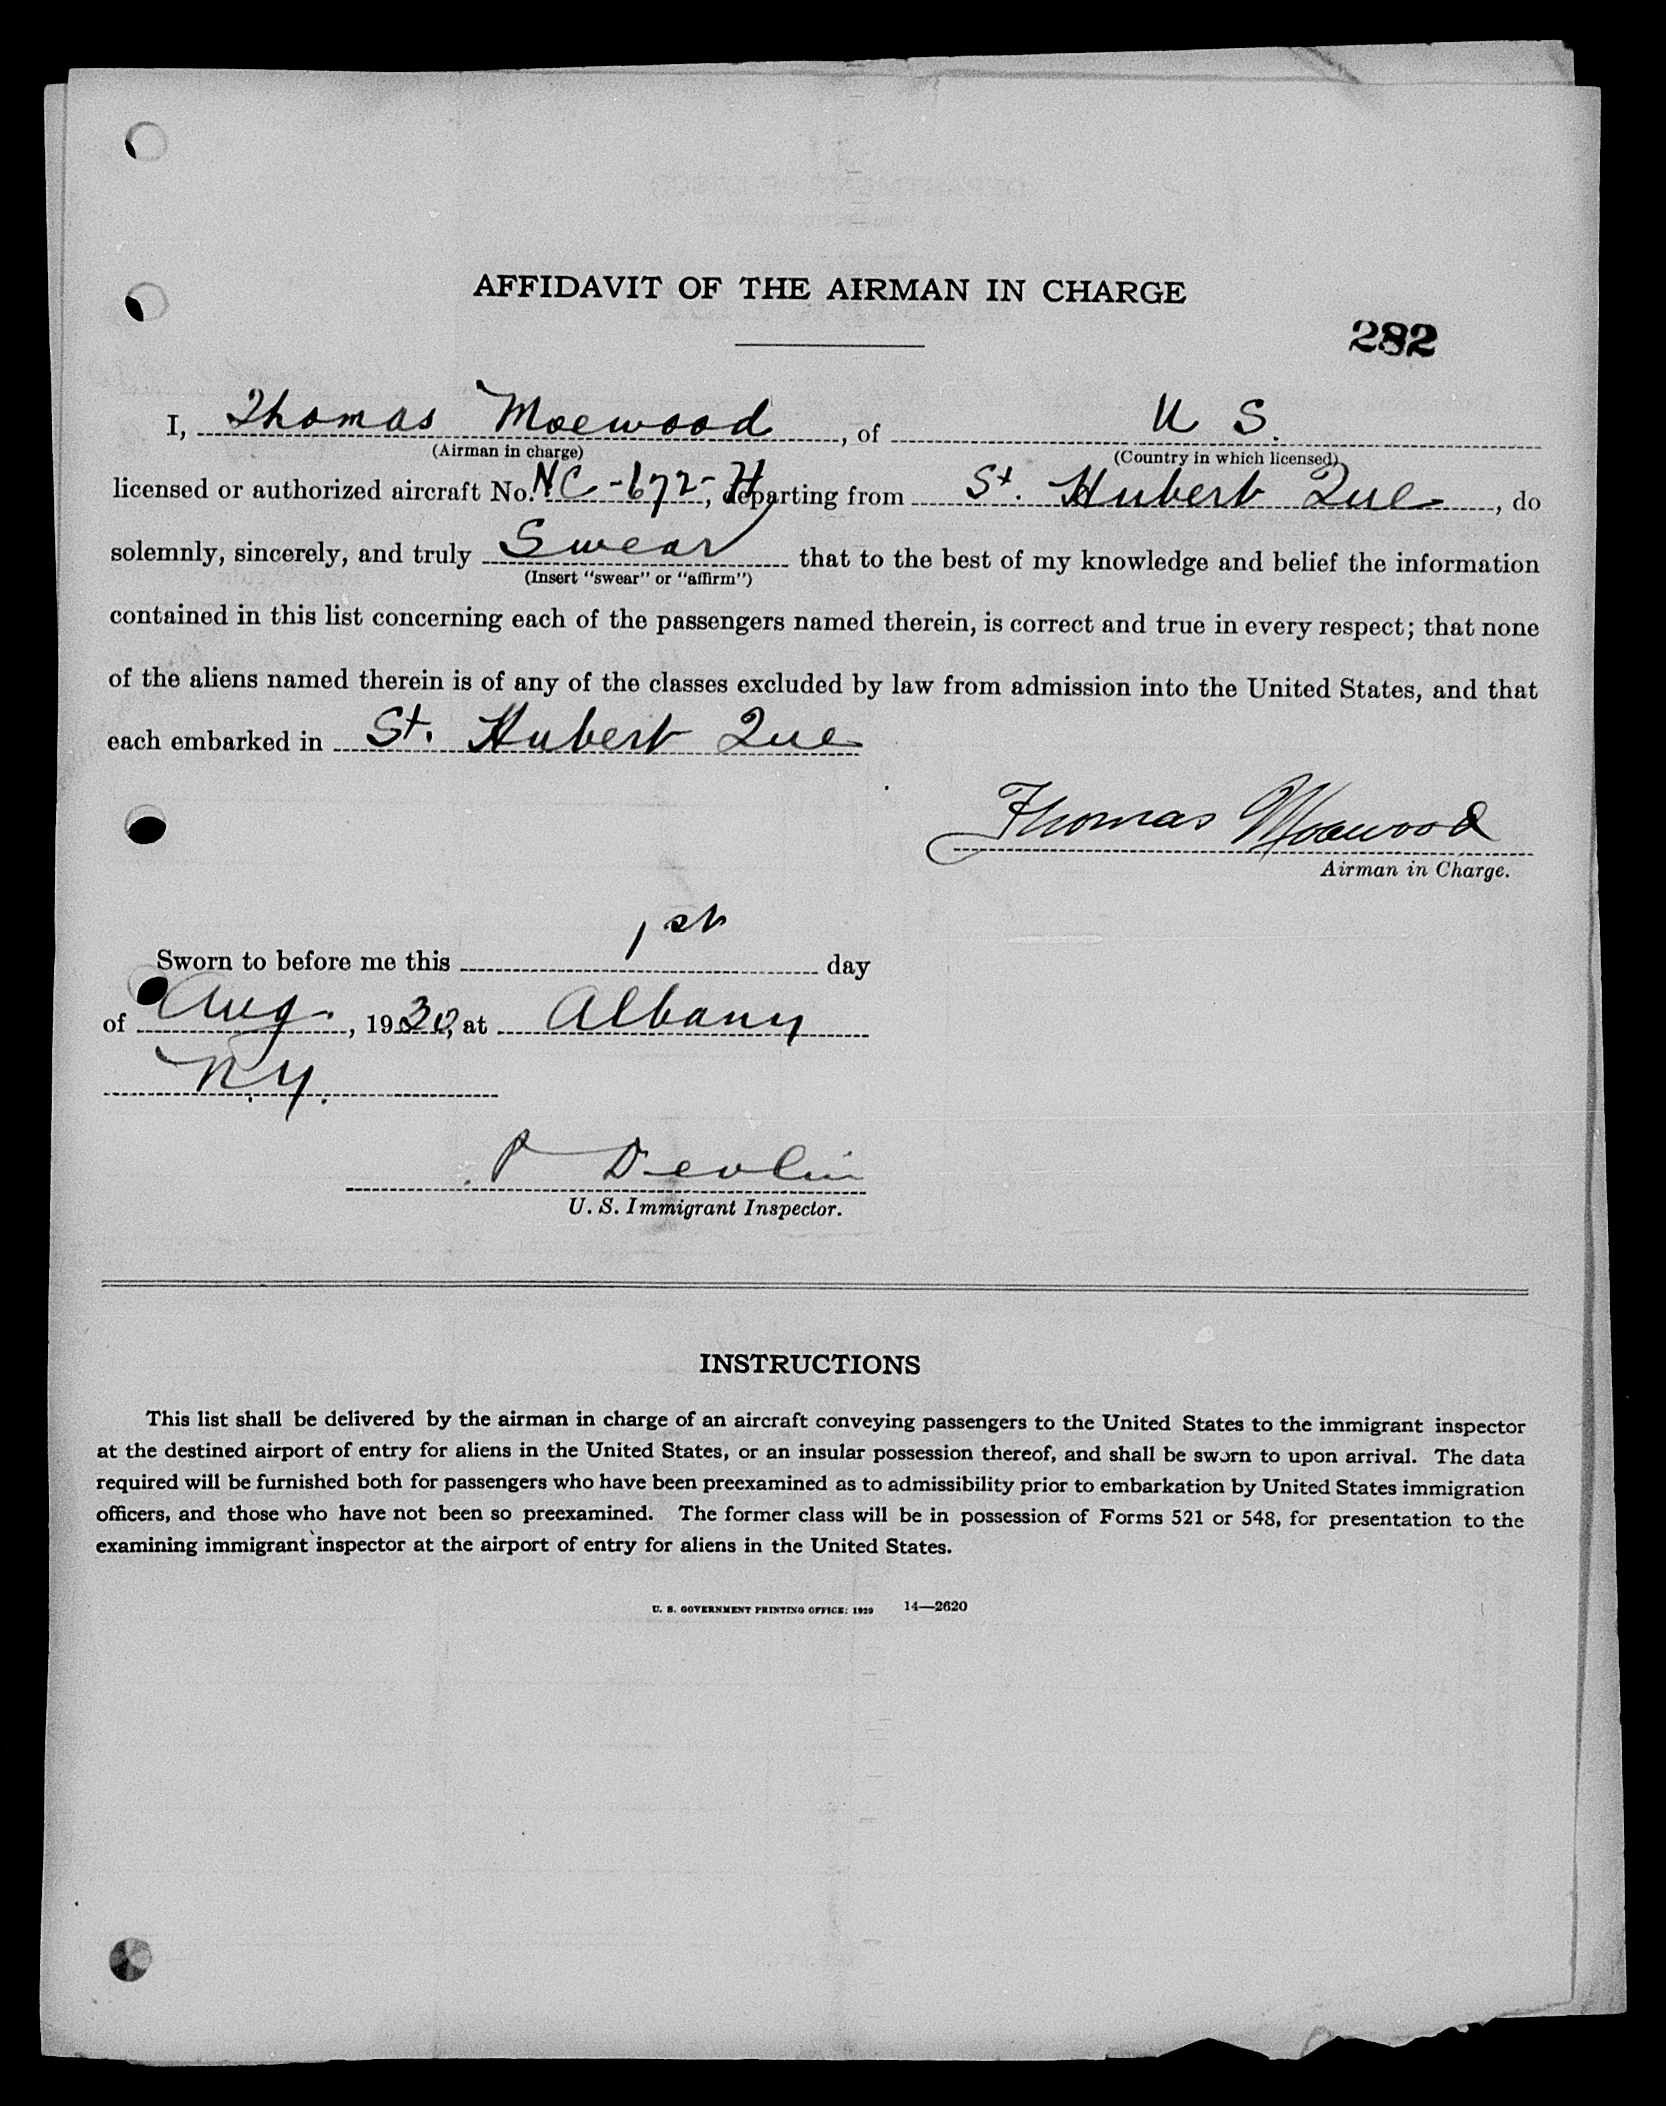 AFFIDAVIT OF THE AIRMAN IN CHARGE
282
I, Thomas Moewood, of U S.
(Airman in charge) (Country in which licensed)
licensed or authorized aircraft No. NC-672-H, departing from St. Hubert Que, do
solemnly, sincerely, and truly Swear that to the best of my knowledge and belief the information
(Insert "swear" or "affirm")
contained in this list concerning each of the passengers named therein, is correct and true in every respect; that none
of the aliens named therein is of any of the classes excluded by law from admission into the United States, and that
each embarked in St. Hubert Que
Thomas Moewood
Airman in Charge.
Sworn to before me this 1st day
of Aug., 1930, at Albany
N.Y.
P Devlin
U. S. Immigrant Inspector.
INSTRUCTIONS
This list shall be delivered by the airman in charge of an aircraft conveying passengers to the United States to the immigrant inspector
at the destined airport of entry for aliens in the United States, or an insular possession thereof, and shall be sworn to upon arrival. The data
required will be furnished both for passengers who have been preexamined as to admissibility prior to embarkation by United States immigration
officers, and those who have not been so preexamined. The former class will be in possession of Forms 521 or 548, for presentation to the
examining immigrant inspector at the airport of entry for aliens in the United States.
U. S. GOVERNMENT PRINTING OFFICE: 1929 14—2620